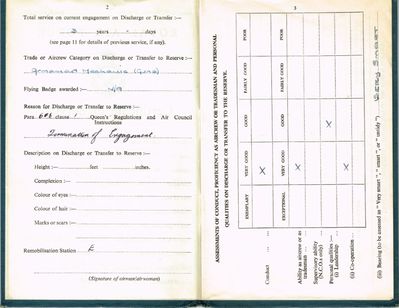 2
Total service on current engagement on Discharge or Transfer :—
3 years - days
(see page 11 for details of previous service, if any).
Trade or Aircrew Category on Discharge or Transfer to Reserve :—
Armament Mechanic (Guns)
Flying Badge awarded :— N/A
Reason for Discharge or Transfer to Reserve :—
Para. 606 clause 1 Queen's Regulations and Air Council
Instructions
Termination of Engagement.
Description on Discharge or Transfer to Reserve :—
Height :— feet inches.
Complexion :—
Colour of eyes :—
Colour of hair :—
Marks or scars :—
Remobilisation Station E
(Signature of airman/airwoman)
3
ASSESSMENTS OF CONDUCT, PROFICIENCY AS AIRCREW OR TRADESMAN AND PERSONAL
QUALITIES ON DISCHARGE OR TRANSFER TO THE RESERVE.
EXEMPLARY VERY GOOD GOOD FAIRLY GOOD POOR
Conduct ... ... X
EXCEPTIONAL VERY GOOD GOOD FAIRLY GOOD POOR
Ability as aircrew or as
tradesman ... X
Supervisory ability
(N.C.Os only) ...
Personal qualities :—
(i) Leadership ... X
(ii) Co-operation ... X
(iii) Bearing (to be assessed as " Very smart ", " smart ", or " untidy ") Very Smart